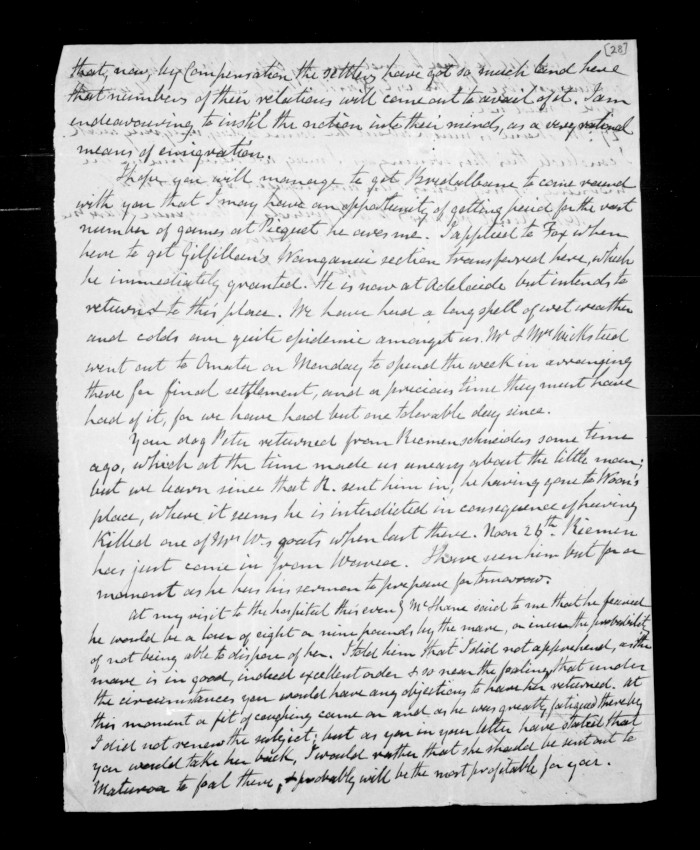 [28]
that, now, by Compensation the settlers have got so much land here
that numbers of their relations will come out to avail of it. I am
endeavouring to instil the notion into their minds, as a very rational
means of emigration.
I hope you will manage to get Bridalbane to come round
with you that I may have an opportunity of getting paid for the vast
number of games at Picquet he owes me. I applied to Fox when
here to get Gilfillan's Wanganui section transferred here, which
he immediately granted. He is now at Adelaide but intends to
return to this place. We have had a long spell of wet weather
and colds are quite epidemic amongst us. Mr & Mrs Wicksteed
went out to Omata on Monday to spend the week in arranging
there for final settlement, and a precious time they must have
had of it, for we have had but one tolerable day since.
Your dog Peter returned from Riemenschneiders some time
ago, which at the time made us uneasy about the little man;
but we learn since that R. sent him in, he having gone to Woon's
place, where it seems he is interdicted in consequence of having
Killed one of Mrs W's goats when last there. Noon 26th. Riemen
has just come in from Waweea. I have seen him but for a
moment as he has his sermon to prepare for tomorrow.
At my visit to the hospital this eveng McShane said to me that he feared
he would be a loser of eight or nine pounds by the mare, or even the probability
of not being able to dispose of her. I told him that I did not apprehend, as the
mare is in good, indeed excellent order & so near the foaling, that under
the circumstances you would have any objections to have her returned. At
this moment a fit of coughing came on and as he was greatly fatigued thereby
I did not renew the subject; but as you in your letter have stated that
you would take her back, I would rather that she should be sent out to
Maturoa to foal there, & probably will be the most profitable for you.